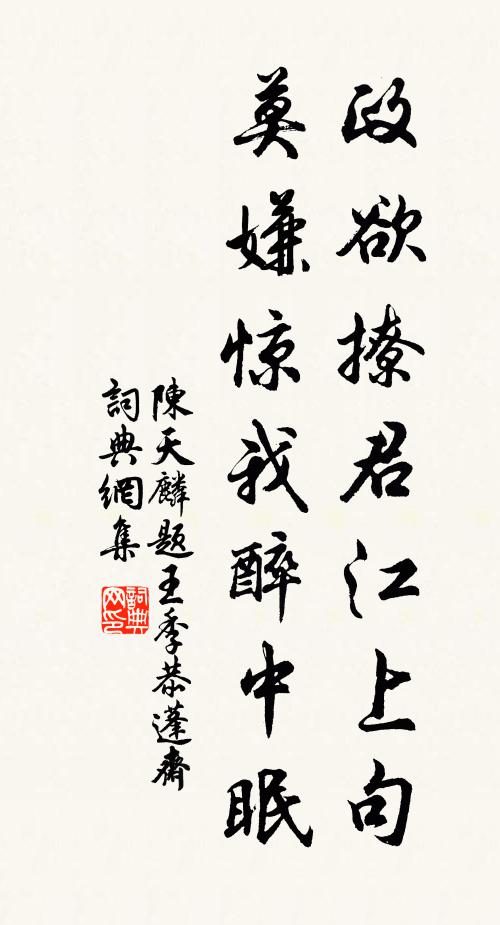 政欲撩君江上句
莫嫌惊我醉中眠
陳天麟題王季恭蓬齋
詞典網集
詞典网印